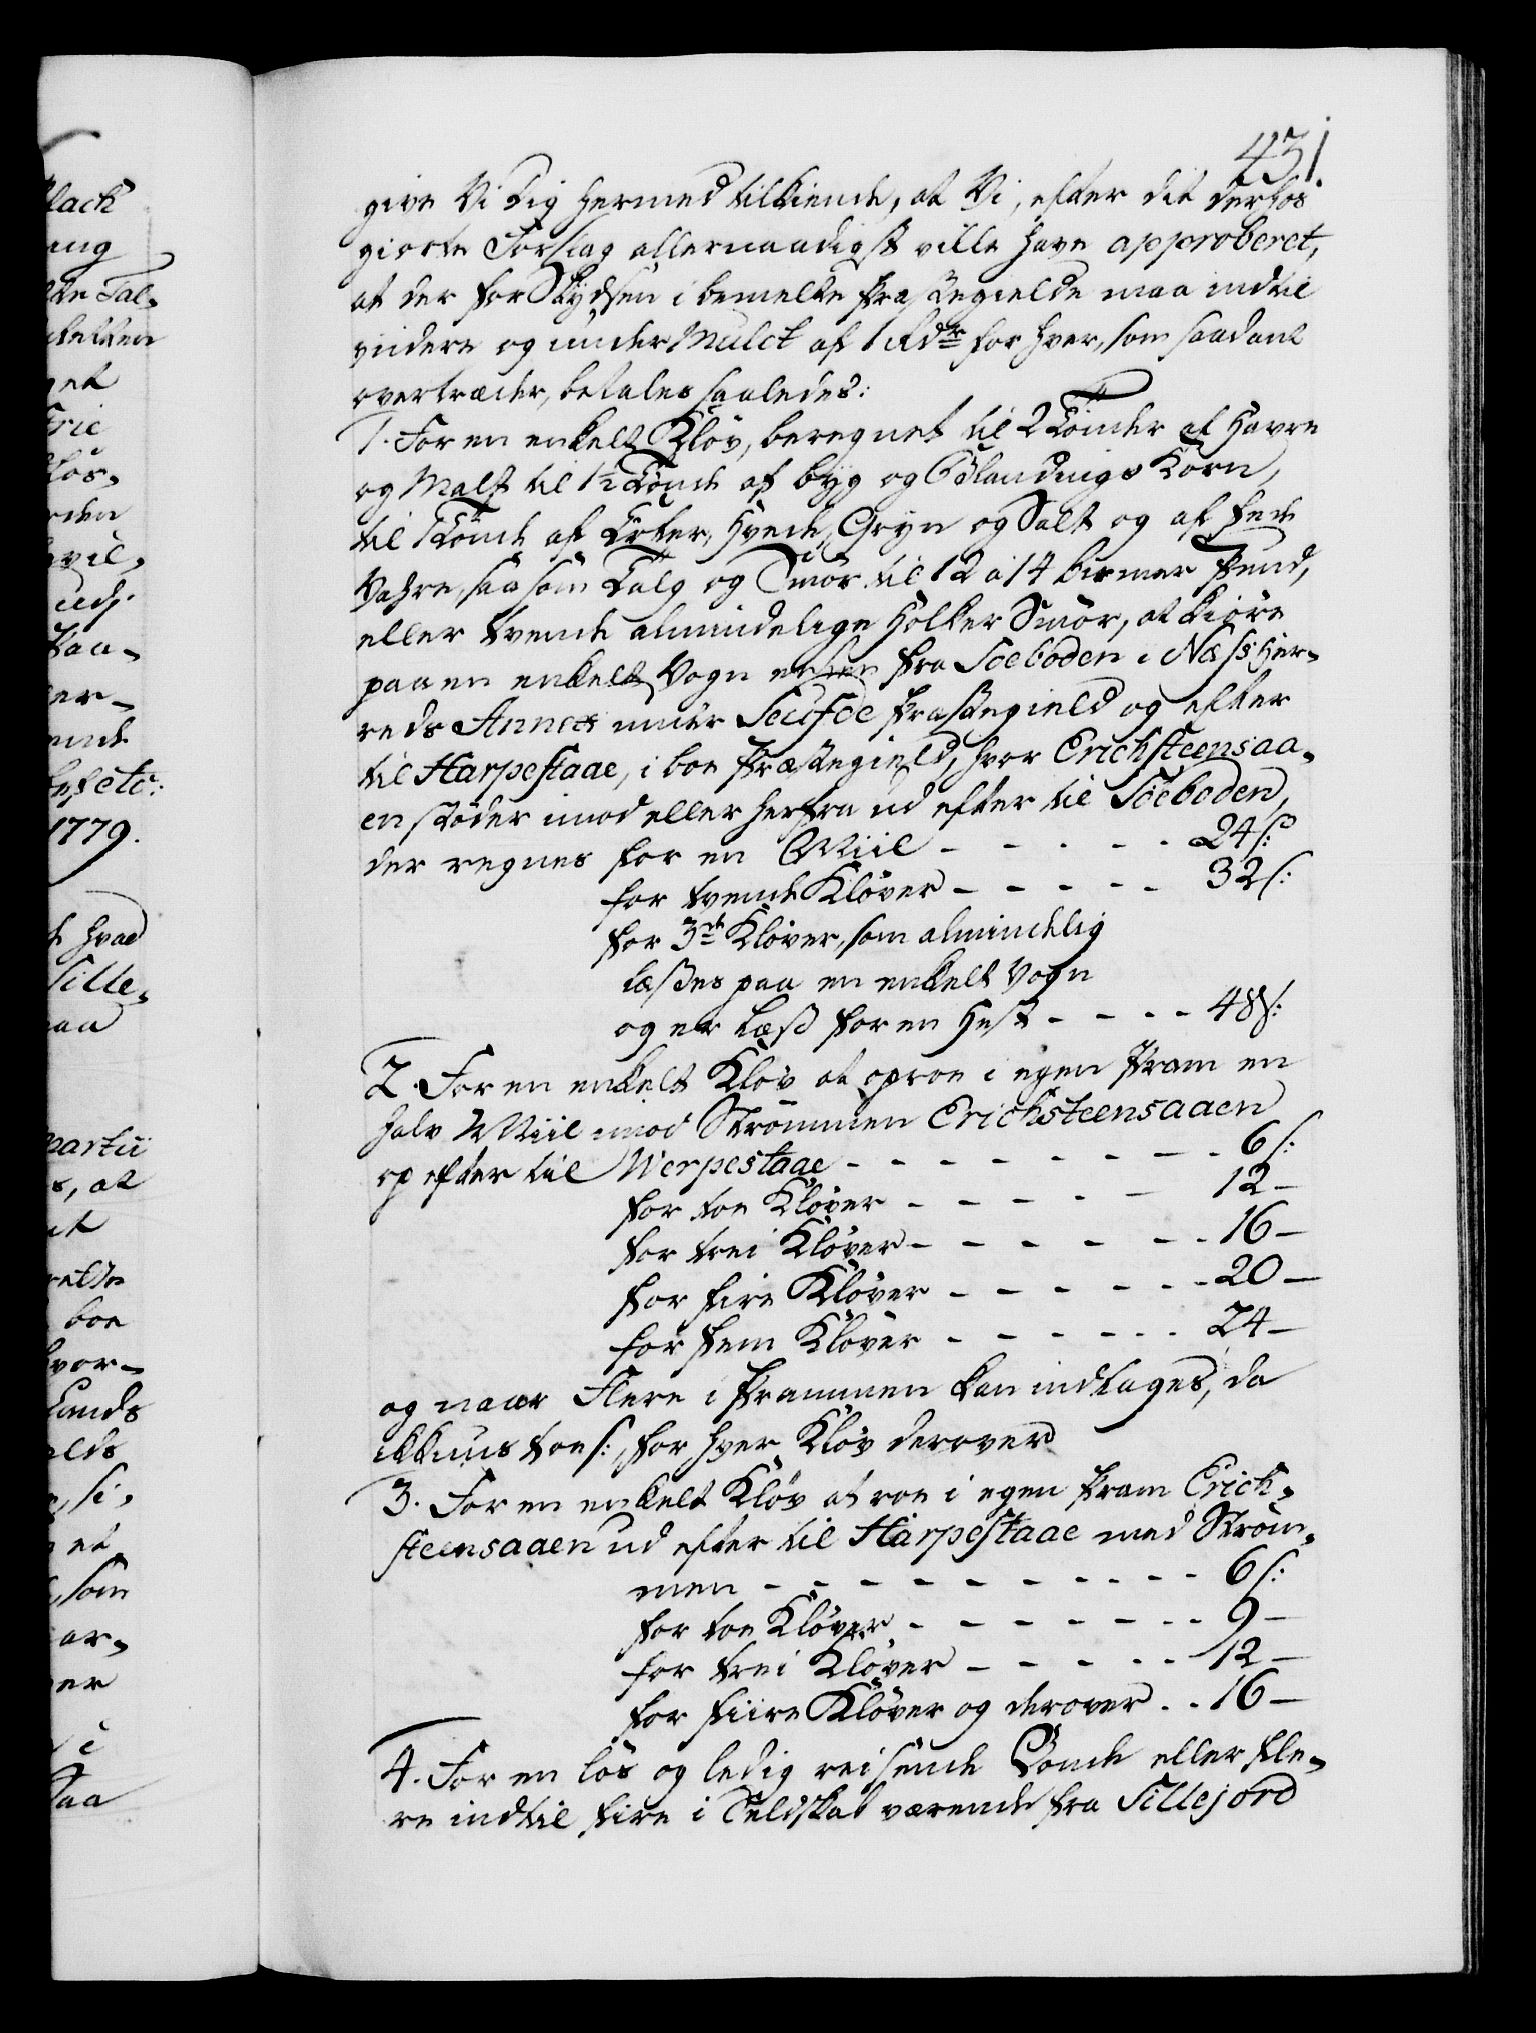 431
give Vi Dig hermed tilkiende, at Vi, efter dit derhos
giorte Forslag allernaadigst ville have approberet,
at der for Skydsen i bemelte Præstegielde maa indtil
videre og under Mulct af 1 Rdr for hver, som saadant
overtræder, betales saaledes:
1. For en enkelt Kløv, beregnet til 2 Tønder af Havre
og Malt til 1½ Tønde af byg og Blandings Korn,
til 1 Tønde af Erter, Hvede, Gryn og Salt og af fede
Vahre, saasom Talg og Smør til 12 a 14 bismer Pund,
eller tvende almindelige Holker Smør, at kiøre
paa en enkelt Vogn fra Søeboden i Næsherreds
reds Annex under Soufde Præstegield og efter
til Harpestaae, i boe Præstegield, hvor Erichsteensaa-
en støder imod eller herfra ud efter til Søeboden,
der regnes for en Miil - - - - - 24 s:
for tvende Kløver - - - - - 32 s:
for 3de Kløver, som almindelig
læsses paa en enkelt Vogn
og er Læss for en Hest - - - - 48 s:
2. For en enkelt Kløv at oproe i egen Pram en
halv Miil imod Strømmen Erichsteensaaen
op efter til Werpestaae - - - - - - - - 6 s:
for toe Kløver - - - - - 12 -
for trei Kløver - - - - - - 16 -
for fire Kløver - - - - - - 20 -
for fem Kløver - - - - - - 24 -
og naar Flere i Prammen kan indtages, da
ikkuns toe s:, for hver Kløv derover
3. For en enkelt Kløv at roe i egen Pram Erich-
steensaaen ud efter til Harpestaae med Strøm-
men - - - - - - - - - - 6 s:
for toe Kløver - - - - - - - 9 -
for trei Kløver - - - - - 12 -
for fiire Kløver og derover - - 16 -
4. For en løs og ledig reisende Bonde eller fle-
re indtil fire i Selskab værende fra Sillejord